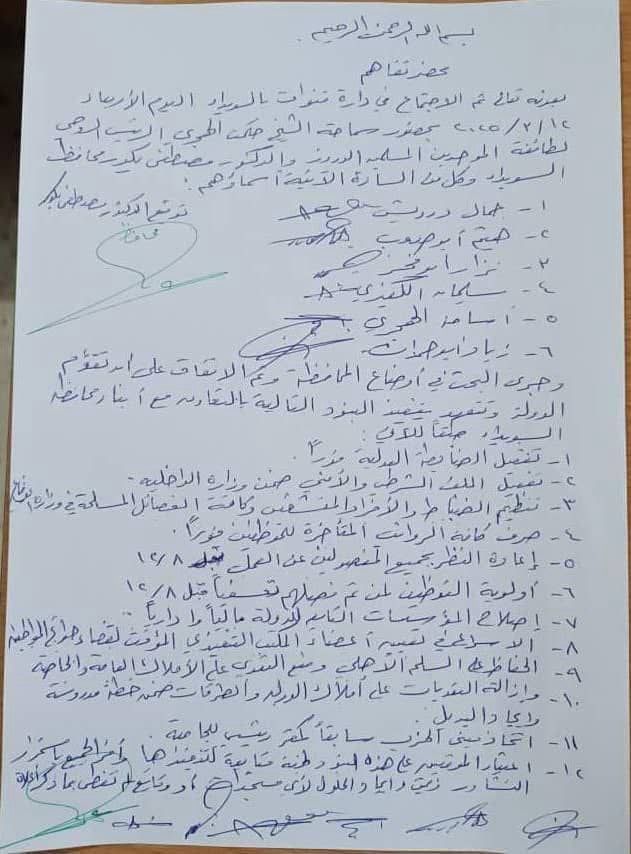 بسم الله الرحمن الرحيم
محضر تفاهم
بعونه تعالى تم الاجتماع في دارة قنوات بالسويداء اليوم الأربعاء
١٢/٣/٢٠٢٥ بحضور سماحة الشيخ حكمت الهجري الرئيس الروحي
لطائفة الموحدين المسلمين الدروز والدكتور مصطفى بكور محافظ
السويداء وكل من السادة الآتية أسماؤهم :
توقيع الدكتور مصطفى بكور
محافظ
١- جمال درويش
٢- هيثم أبو صعب
٣- نزار أبو فخر
٤- سليمان الكفيري
٥- أسامة الهجري
٦- زياد أبو حمدان
وجرى البحث في أوضاع المحافظة وتم الاتفاق على أن تقوم
الدولة وتتعهد بتنفيذ البنود التالية بالتعاون مع أبناء محافظة
السويداء وفقاً للآتي :
١- تفعيل الضابطة العدلية فوراً .
٢- تفعيل الملف الشرطي والأمني ضمن وزارة الداخلية .
٣- تنظيم الضباط والأفراد المنشقين وكافة الفصائل المسلحة في وزارة الدفاع
٤- صرف كافة الرواتب المتأخرة للموظفين فوراً .
٥- إعادة النظر بجميع المفصولين عن العمل قبل ١٢/٨
٦- أولوية التوظيف لمن تم فصلهم تعسفياً قبل ١٢/٨
٧- إصلاح المؤسسات التابعة للدولة مالياً وإدارياً .
٨- الاسراع في تعيين أعضاء المكتب التنفيذي المؤقت لقضاء حوائج المواطنين
٩- الحفاظ على السلم الأهلي ومنع التعدي على الأملاك العامة والخاصة
١٠- وإزالة التعديات على أملاك الدولة والطرقات ضمن خطة مدروسة
وإيجاد البديل .
١١- اتخاذ مبنى الحزب سابقاً كمقر رئيسي للجامعة .
١٢- اعتبار الموقعين على هذه البنود لجنة متابعة لتنفيذها والتزم الجميع باستمرار
التشاور وإيجاد الحلول لأي مستجدات أو وقائع لم تغطى بما ذكر أعلاه